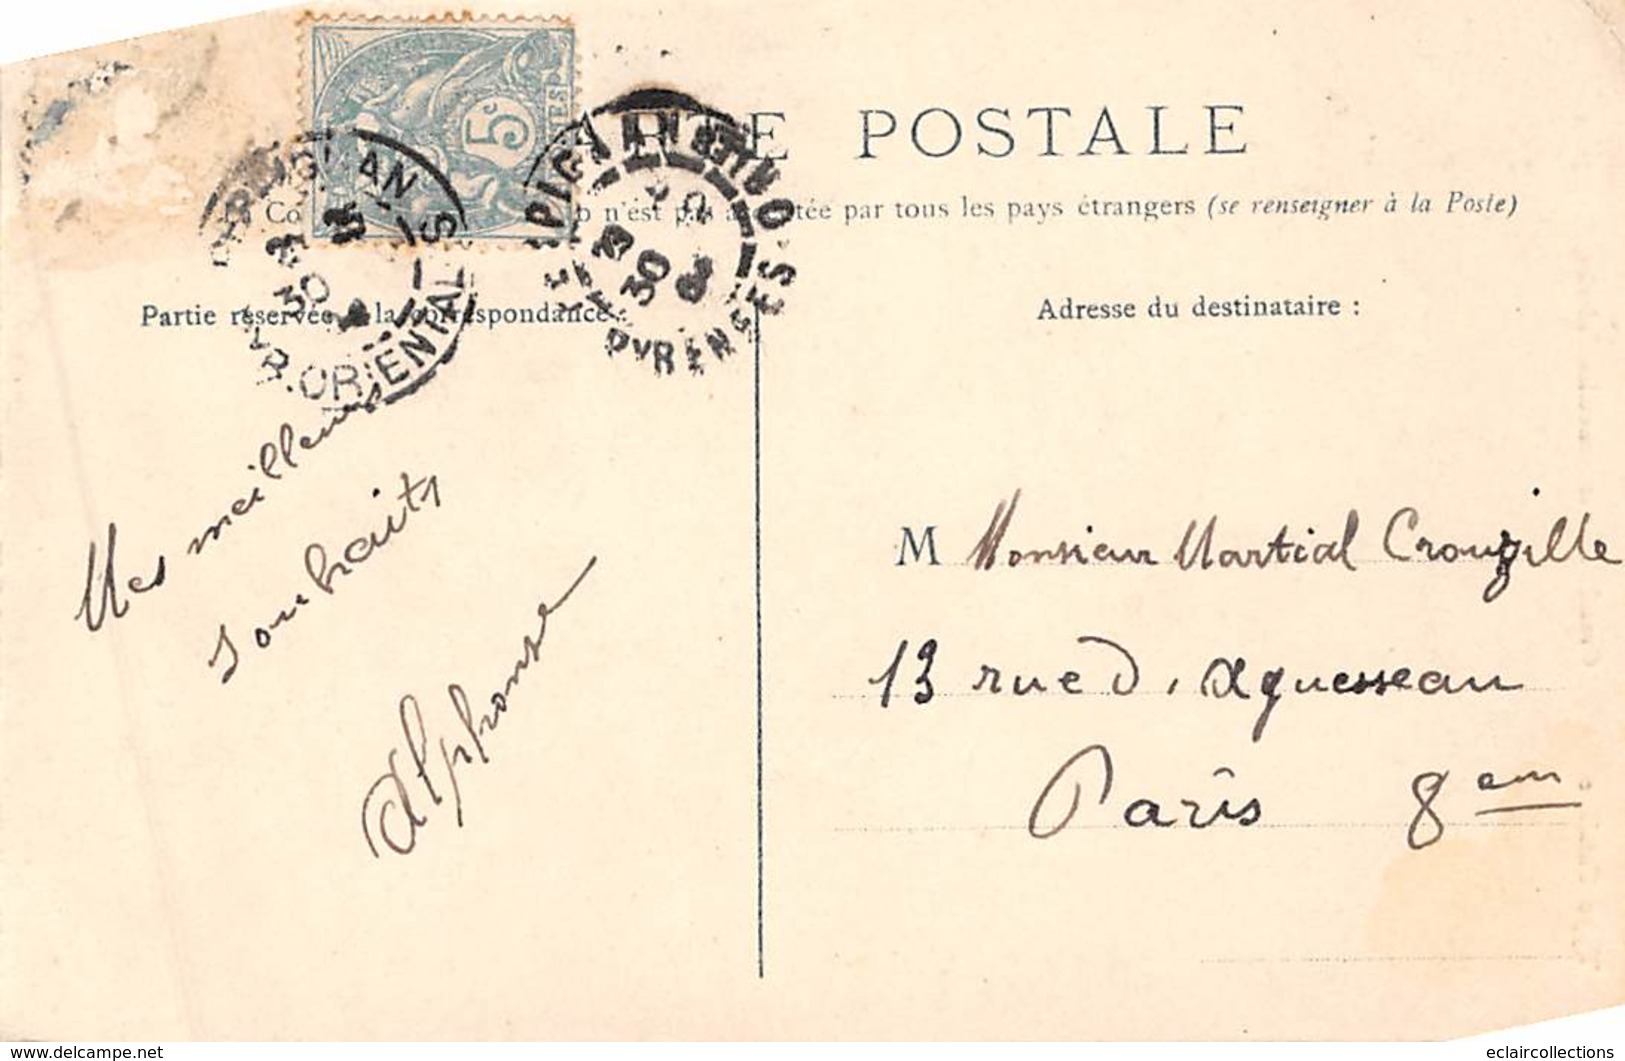 CARTE POSTALE
n'est pas acceptée par tous les pays étrangers (se renseigner à la Poste)
5c
PERPIGNAN
30
PYR. ORIENTALES
PERPIGNAN
30
PYRENEES
Partie réservée à la correspondance :
Adresse du destinataire :
Mes meilleurs
Souhaits
Alphonse
M Monsieur Martial Crouzille
13 rue D'Aguesseau
Paris 8em
www.delcampe.net
eclaircollections